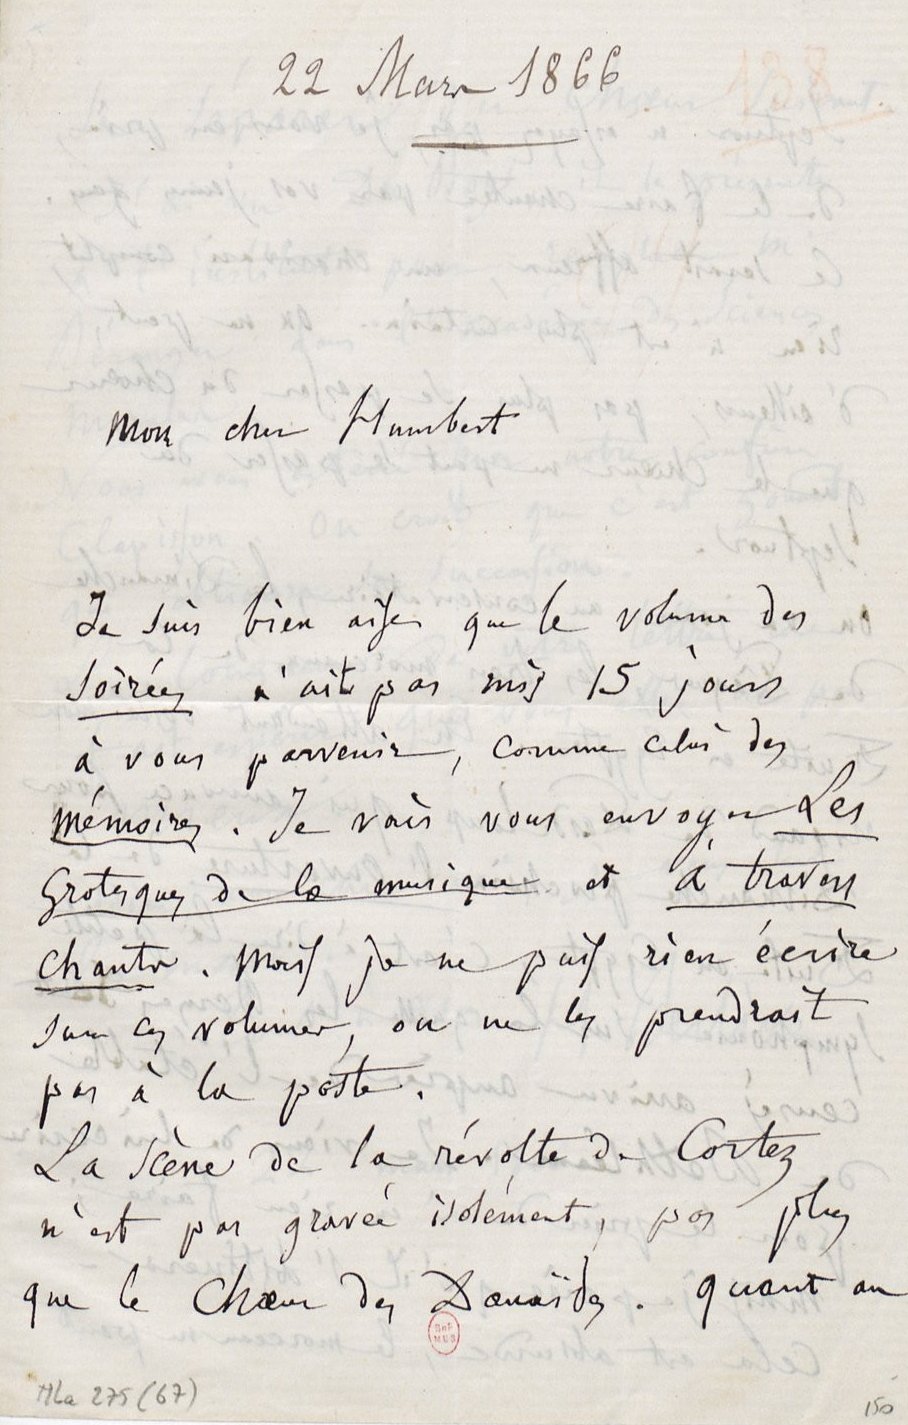 22 Mars 1866
Mon cher Humbert
Je suis bien aise que le volume des
Soirées n'ait pas mis 15 jours
à vous parvenir, comme celui des
mémoires. Je vais vous envoyer Les
Grotesques de la musique et à travers
chants. Mais je ne puis rien écrire
sur ces volumes, on ne les prendrait
pas à la poste.
La Scène de la révolte de Cortez
n'est pas gravée isolément, pas plus
que le Chœur des Danaïdes. quant au
HLa 275 (67)
150